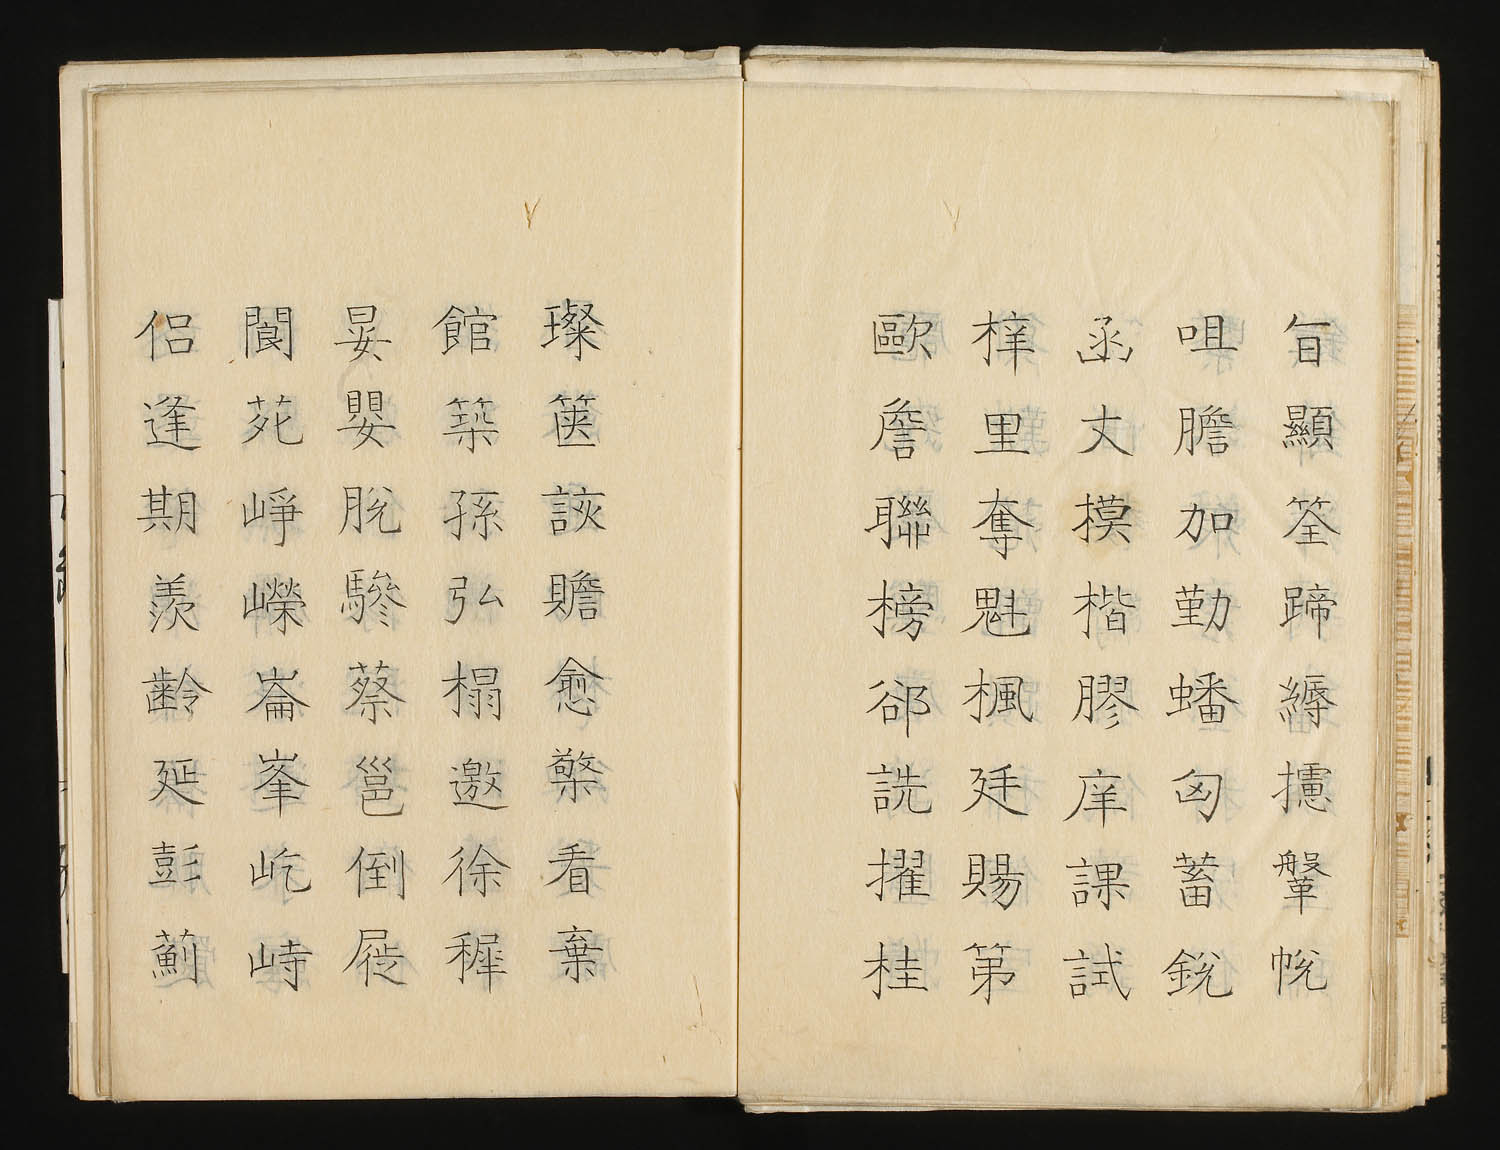 旨顯筌蹄縟攄鞶帨
咀膽加勤蟠匈蓄銳
函丈模楷膠庠課試
梓里奪魁楓廷賜第
歐詹聯榜郤詵擢桂
璨篋詼贍愈檠看棄
館築孫弘榻邀徐穉
晏嬰脫驂蔡邕倒屣
閬苑崢嶸崙峯屹峙
侶逢期羨齡延彭薊